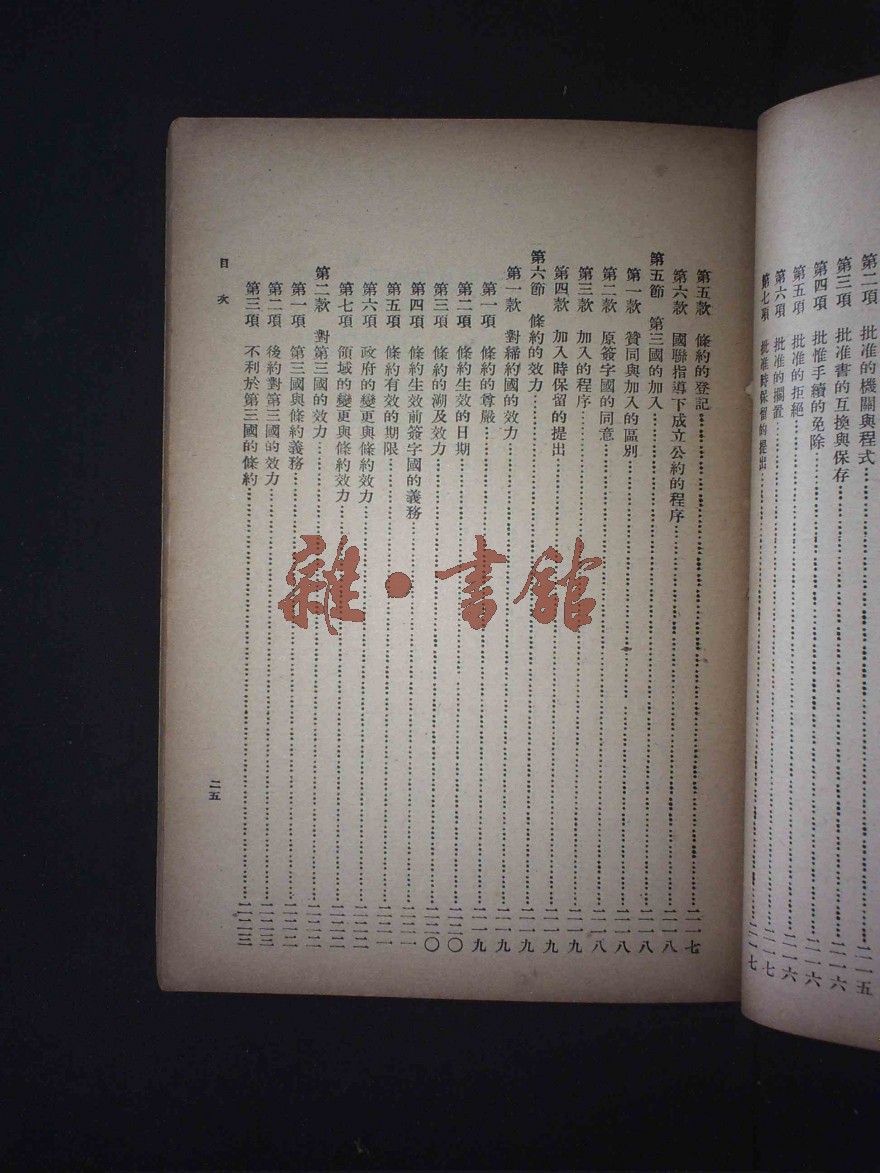 第二項 批准的機關與程式 二一五
第三項 批准書的互換與保存……二一六
第四項 批惟手續的免除……二一六
第五項 批准的拒絕……二一六
第六項 批准的擱置……二一七
第七項 批准時保留的提出……二一七
第五款 條約的登記……二一七
第六款 國聯指導下成立公約的程序……二一八
第五節 第三國的加入……二一八
第一款 贊同與加入的區別……二一八
第二款 原簽字國的同意……二一八
第三款 加入的程序……二一九
第四款 加入時保留的提出……二一九
第六節 條約的效力……二一九
第一款 對締約國的效力……二一九
第一項 條約的尊嚴……二一九
第二項 條約生效的日期……二二〇
第三項 條約的溯及效力……二二〇
第四項 條約生效前簽字國的義務……二二一
第五項 條約有效的期限……二二一
第六項 政府的變更與條約效力……二二二
第七項 領域的變更與條約效力……二二二
第二款 對第三國的效力……二二二
第一項 第三國與條約義務……二二二
第二項 後約對第三國的效力……二二三
第三項 不利於第三國的條約……二二三
目次
二五
雜·書館